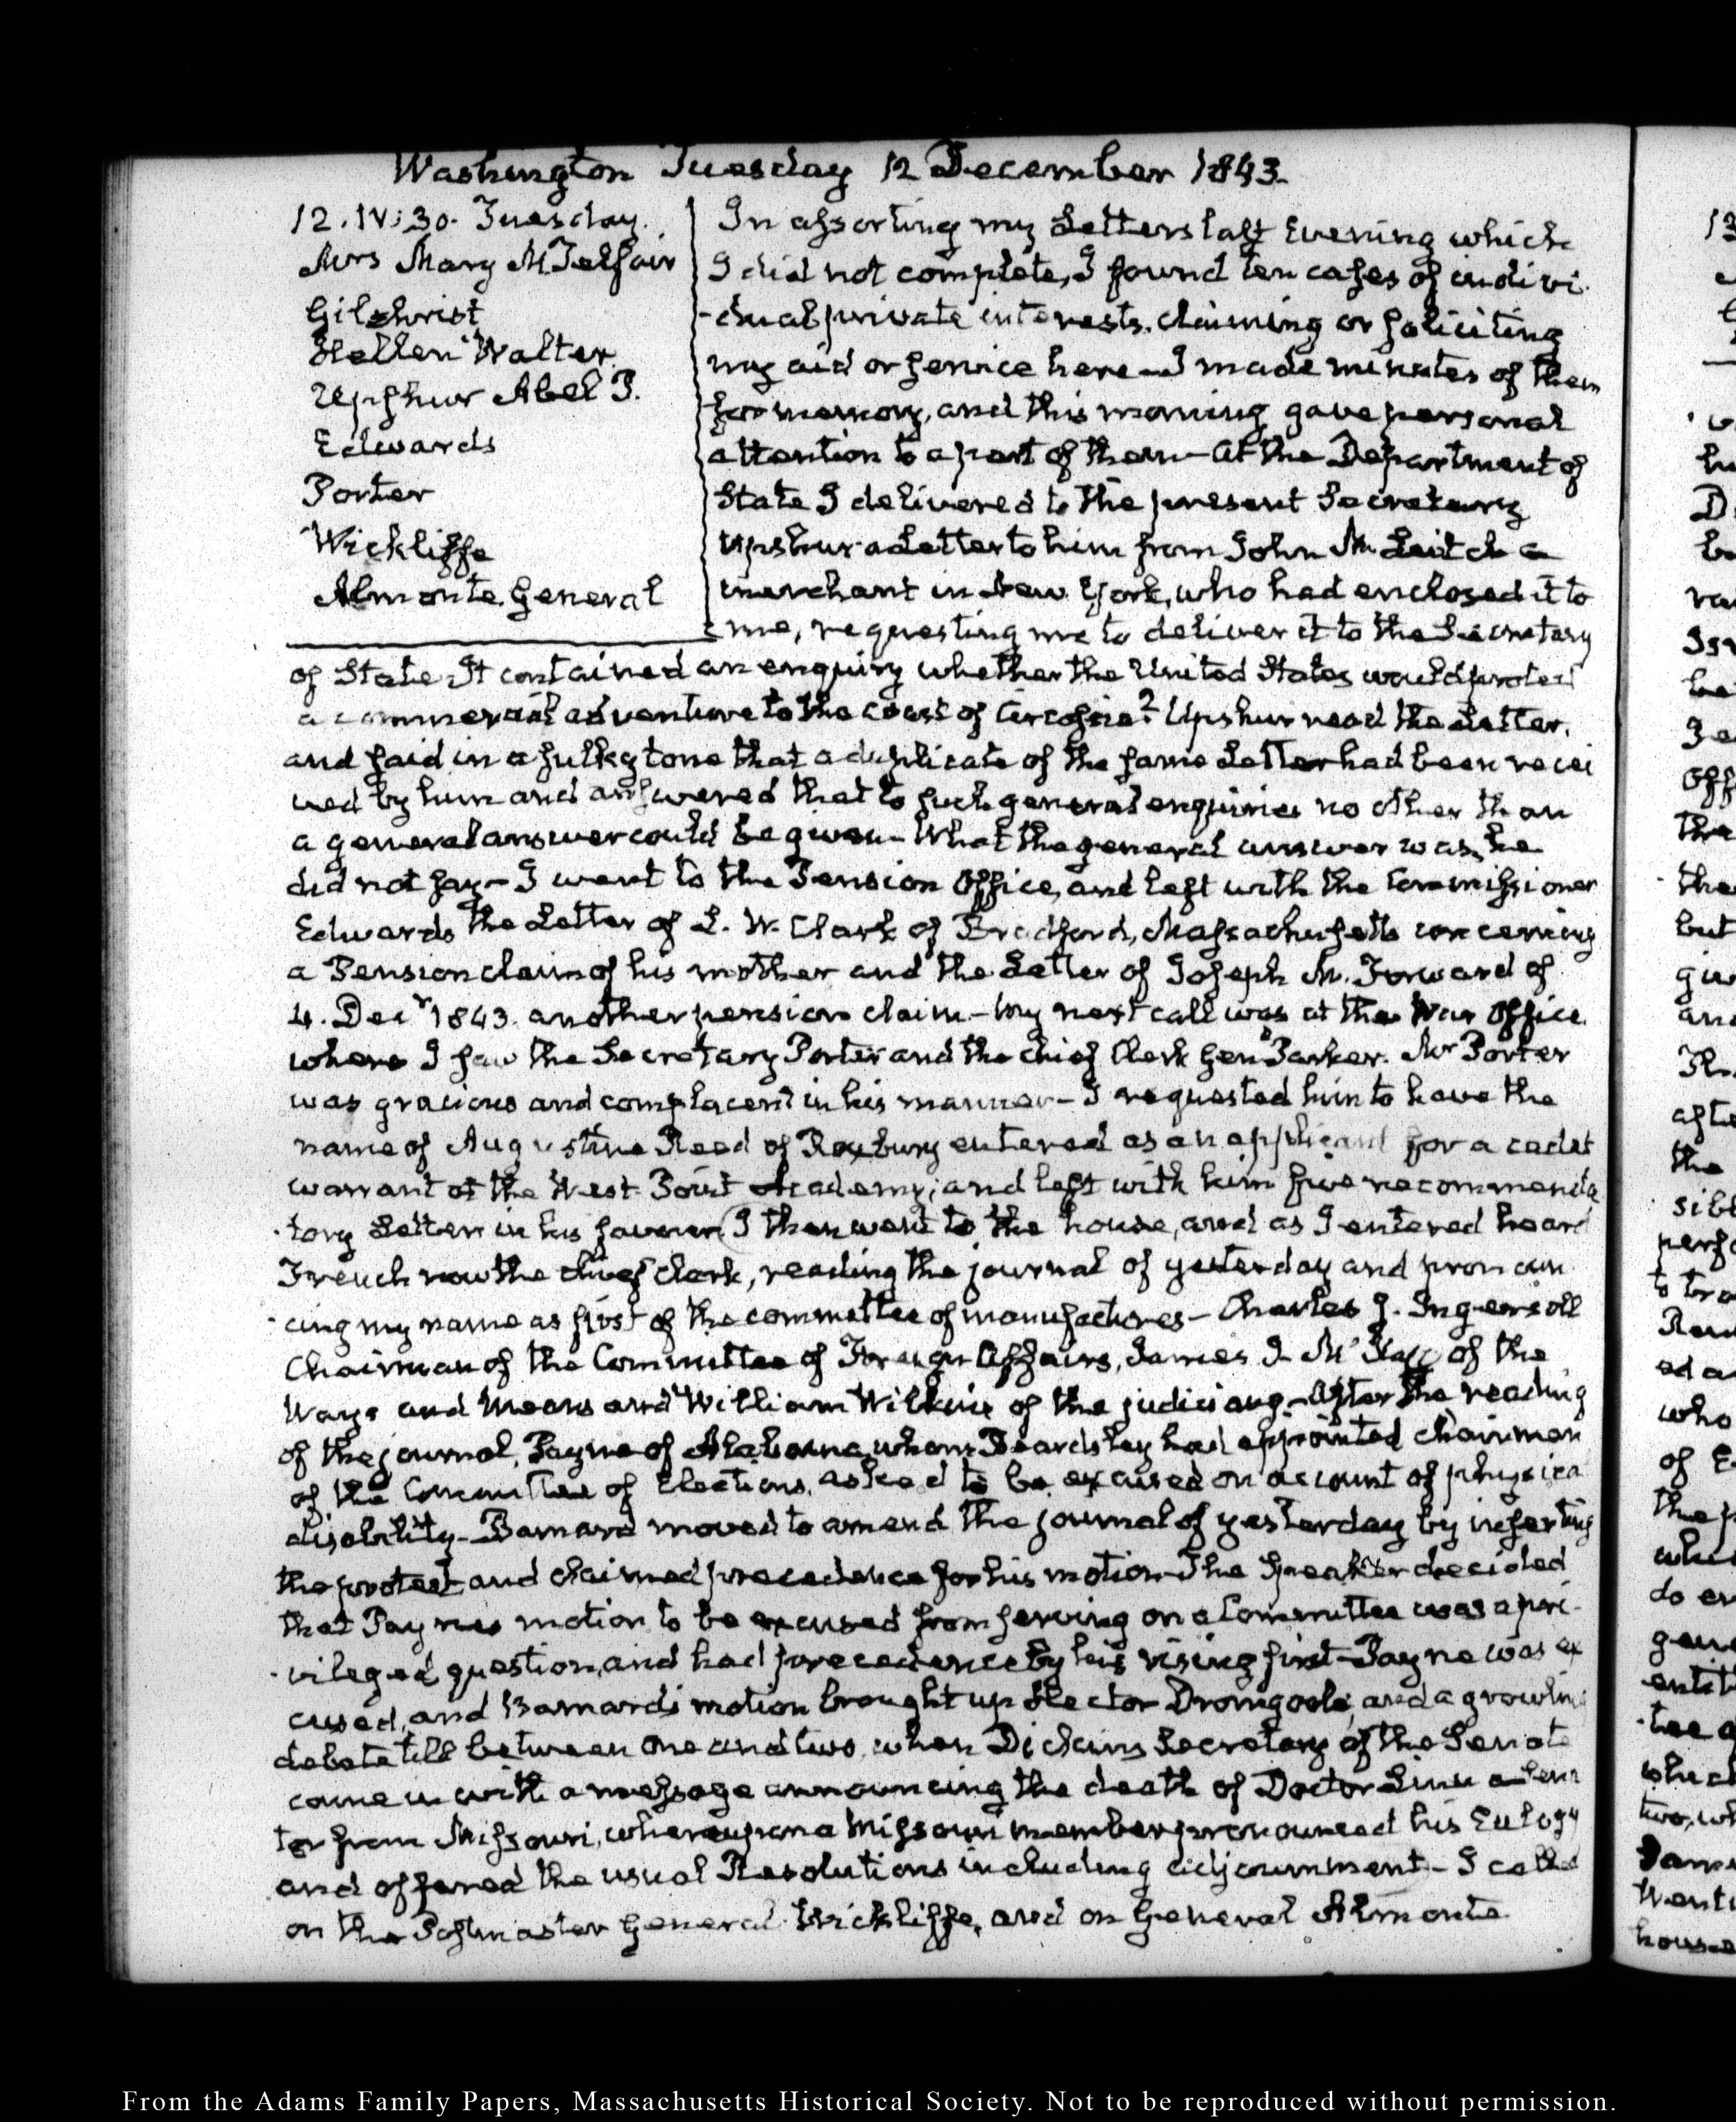 Washington Tuesday 12 December 1843.
12. IV:30. Tuesday.
Mrs Mary M Telfair
Gilchrist
Hellen Walter
Upshur Abel P.
Edwards
Porter
Wickliffe
Almonte. General
In assorting my Letters last Evening which
I did not complete, I found ten cases of indivi-
-dual private interests, claiming or soliciting
my aid or service here—I made minutes of them
for memory, and this morning gave personal
attention to a part of them—At the Department of
State I delivered to the present Secretary
Upshur a Letter to him from John M. Leitch a
merchant in New York, who had enclosed it to
me, requesting me to deliver it to the Secretary
of State. It contained an enquiry whether the United States would protect
a commercial adventure to the coast of Circassia? Upshur read the Letter,
and said in a sulky tone that a duplicate of the same Letter had been recei
ved by him and answered that to such general enquiries no other than
a general answer could be given—What the general answer was, he
did not say—I went to the Pension Office, and left with the Commissioner
Edwards the Letter of L. W. Clark of Bradford, Massachusetts concerning
a Pension claim of his mother and the Letter of Joseph M. Forward of
4. Decr 1843. another pension claim—My next call was at the War Office
where I saw the Secretary Porter and the chief Clerk Genl Parker. Mr Porter
was gracious and complacent in his manner—I requested him to have the
name of Augustine Reed of Roxbury entered as an applicant for a cadet
warrant at the West-Point Academy; and left with him five recommenda
-tory Letters in his favour. I then went to the house, and as I entered heard
French now the chief clerk, reading the journal of yesterday and pronoun
-cing my name as first of the committee of manufactures—Charles J. Ingersoll
Chairman of the Committee of Foreign Affairs, James I. McKay of the
Ways and Means and William Wilkins of the judiciary—After the reading
of the journal, Payne of Alabama, whom Beardsley had appointed chairman
of the Committee of Elections, asked to be excused on account of physica
disability—Barnard moved to amend the journal of yesterday by inserting
the protest and claimed precedence for his motion—The Speaker decided
that Paynes motion to be excused from serving on a Committee was a pri-
-vileged question, and had precedence by his rising first—Payne was ex
cused, and Barnard's motion brought up Hector Dromgoole, and a growling
debate till between one and two, when Dickins Secretary of the Senate
came in with a message announcing the death of Doctor Linn a Sena
tor from Missouri, whereupon a Missouri member pronounced his Eulogy
and offered the usual Resolutions including adjournment—I called
on the Postmaster General Wickliffe, and on General Almonte
From the Adams Family Papers, Massachusetts Historical Society. Not to be reproduced without permission.